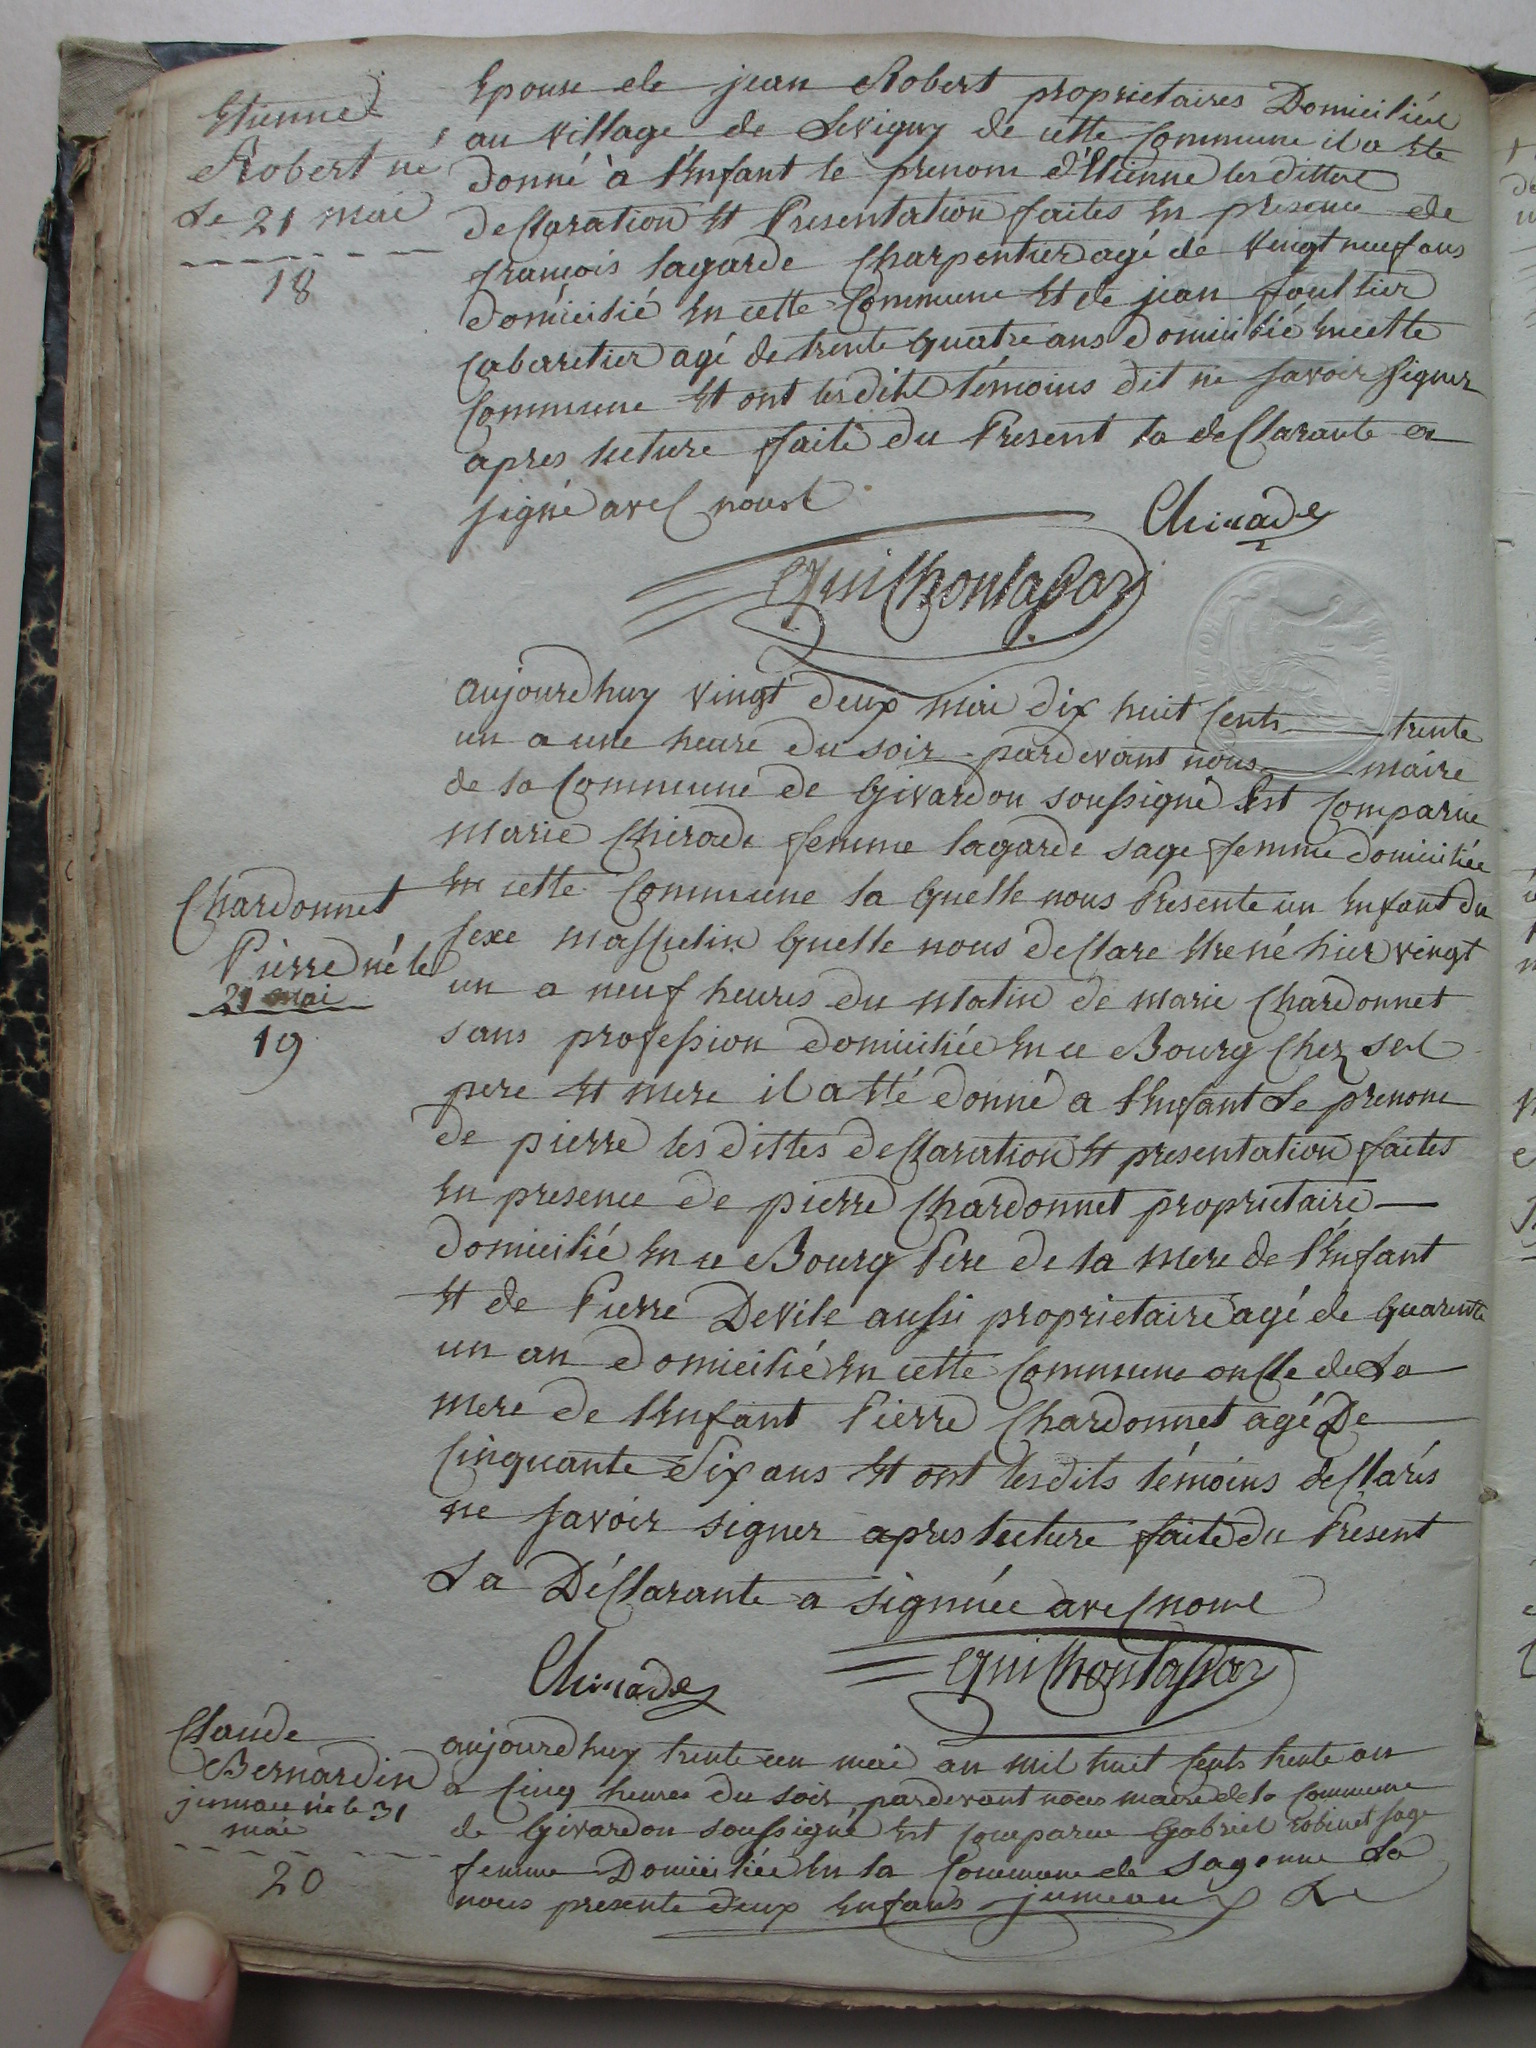 Etienne
Robert né
Le 21 mai
18
Epouse de jean Robert proprietaires Domiciliée
au village de Sevigny de cette Commune il a Ete
donné à l'Enfant le prenom d'Etienne les dittes
declaration Et Presentation faites En presence de
françois lagarde Charpentier agé de vingt neuf ans
domicilié En cette Commune Et de jean foultier
Cabaretier agé de trente quatre ans domicilié En cette
Commune Et ont les dits témoins dit ne savoir signer
apres lecture faite du Present la declarante a
signé avec nous
Chirade
Guilhonlapar
aujourdhuy vingt deux mai dix huit Cents trente
un a une heure du soir pardevant nous maire
de la Commune de Givardon soussigné Est Comparue
Marie Chirade femme lagarde sage femme domiciliée
En cette Commune la quelle nous Presente un Enfant du
sexe masculin quelle nous declare Etre né hier vingt
un a neuf heures du matin de marie Chardonnet
sans profession domiciliée En ce Bourg Chez ses
pere Et mere il a Eté donné a l'Enfant Le prenom
de pierre les dittes declaration Et presentation faites
En presence de pierre Chardonnet proprietaire
domicilié En ce Bourg Pere de la mere de l'Enfant
Et de Pierre Devile aussi proprietaire agé de quarente
un an domicilié En cette Commune oncle de La
mere de l'Enfant Pierre Chardonnet agé De
Cinquante Six ans Et ont lesdits témoins declarés
ne savoir signer apres lecture faite du Present
La Déclarante a signée avec nous
Chardonnet
Pierre né le
21 mai
19
Chirade
Guilhonlapar
Claude
Bernardin
jumau né le 31
mai
20
aujourdhuy trente un mai an mil huit Cents trente un
a Cinq heures du soir pardevant nous maire de la Commune
de Givardon soussigné Est Comparue Gabriel robinet sage
femme Domiciliée En la Commune de Sagonne La
nous presente deux Enfans jumeaux Le